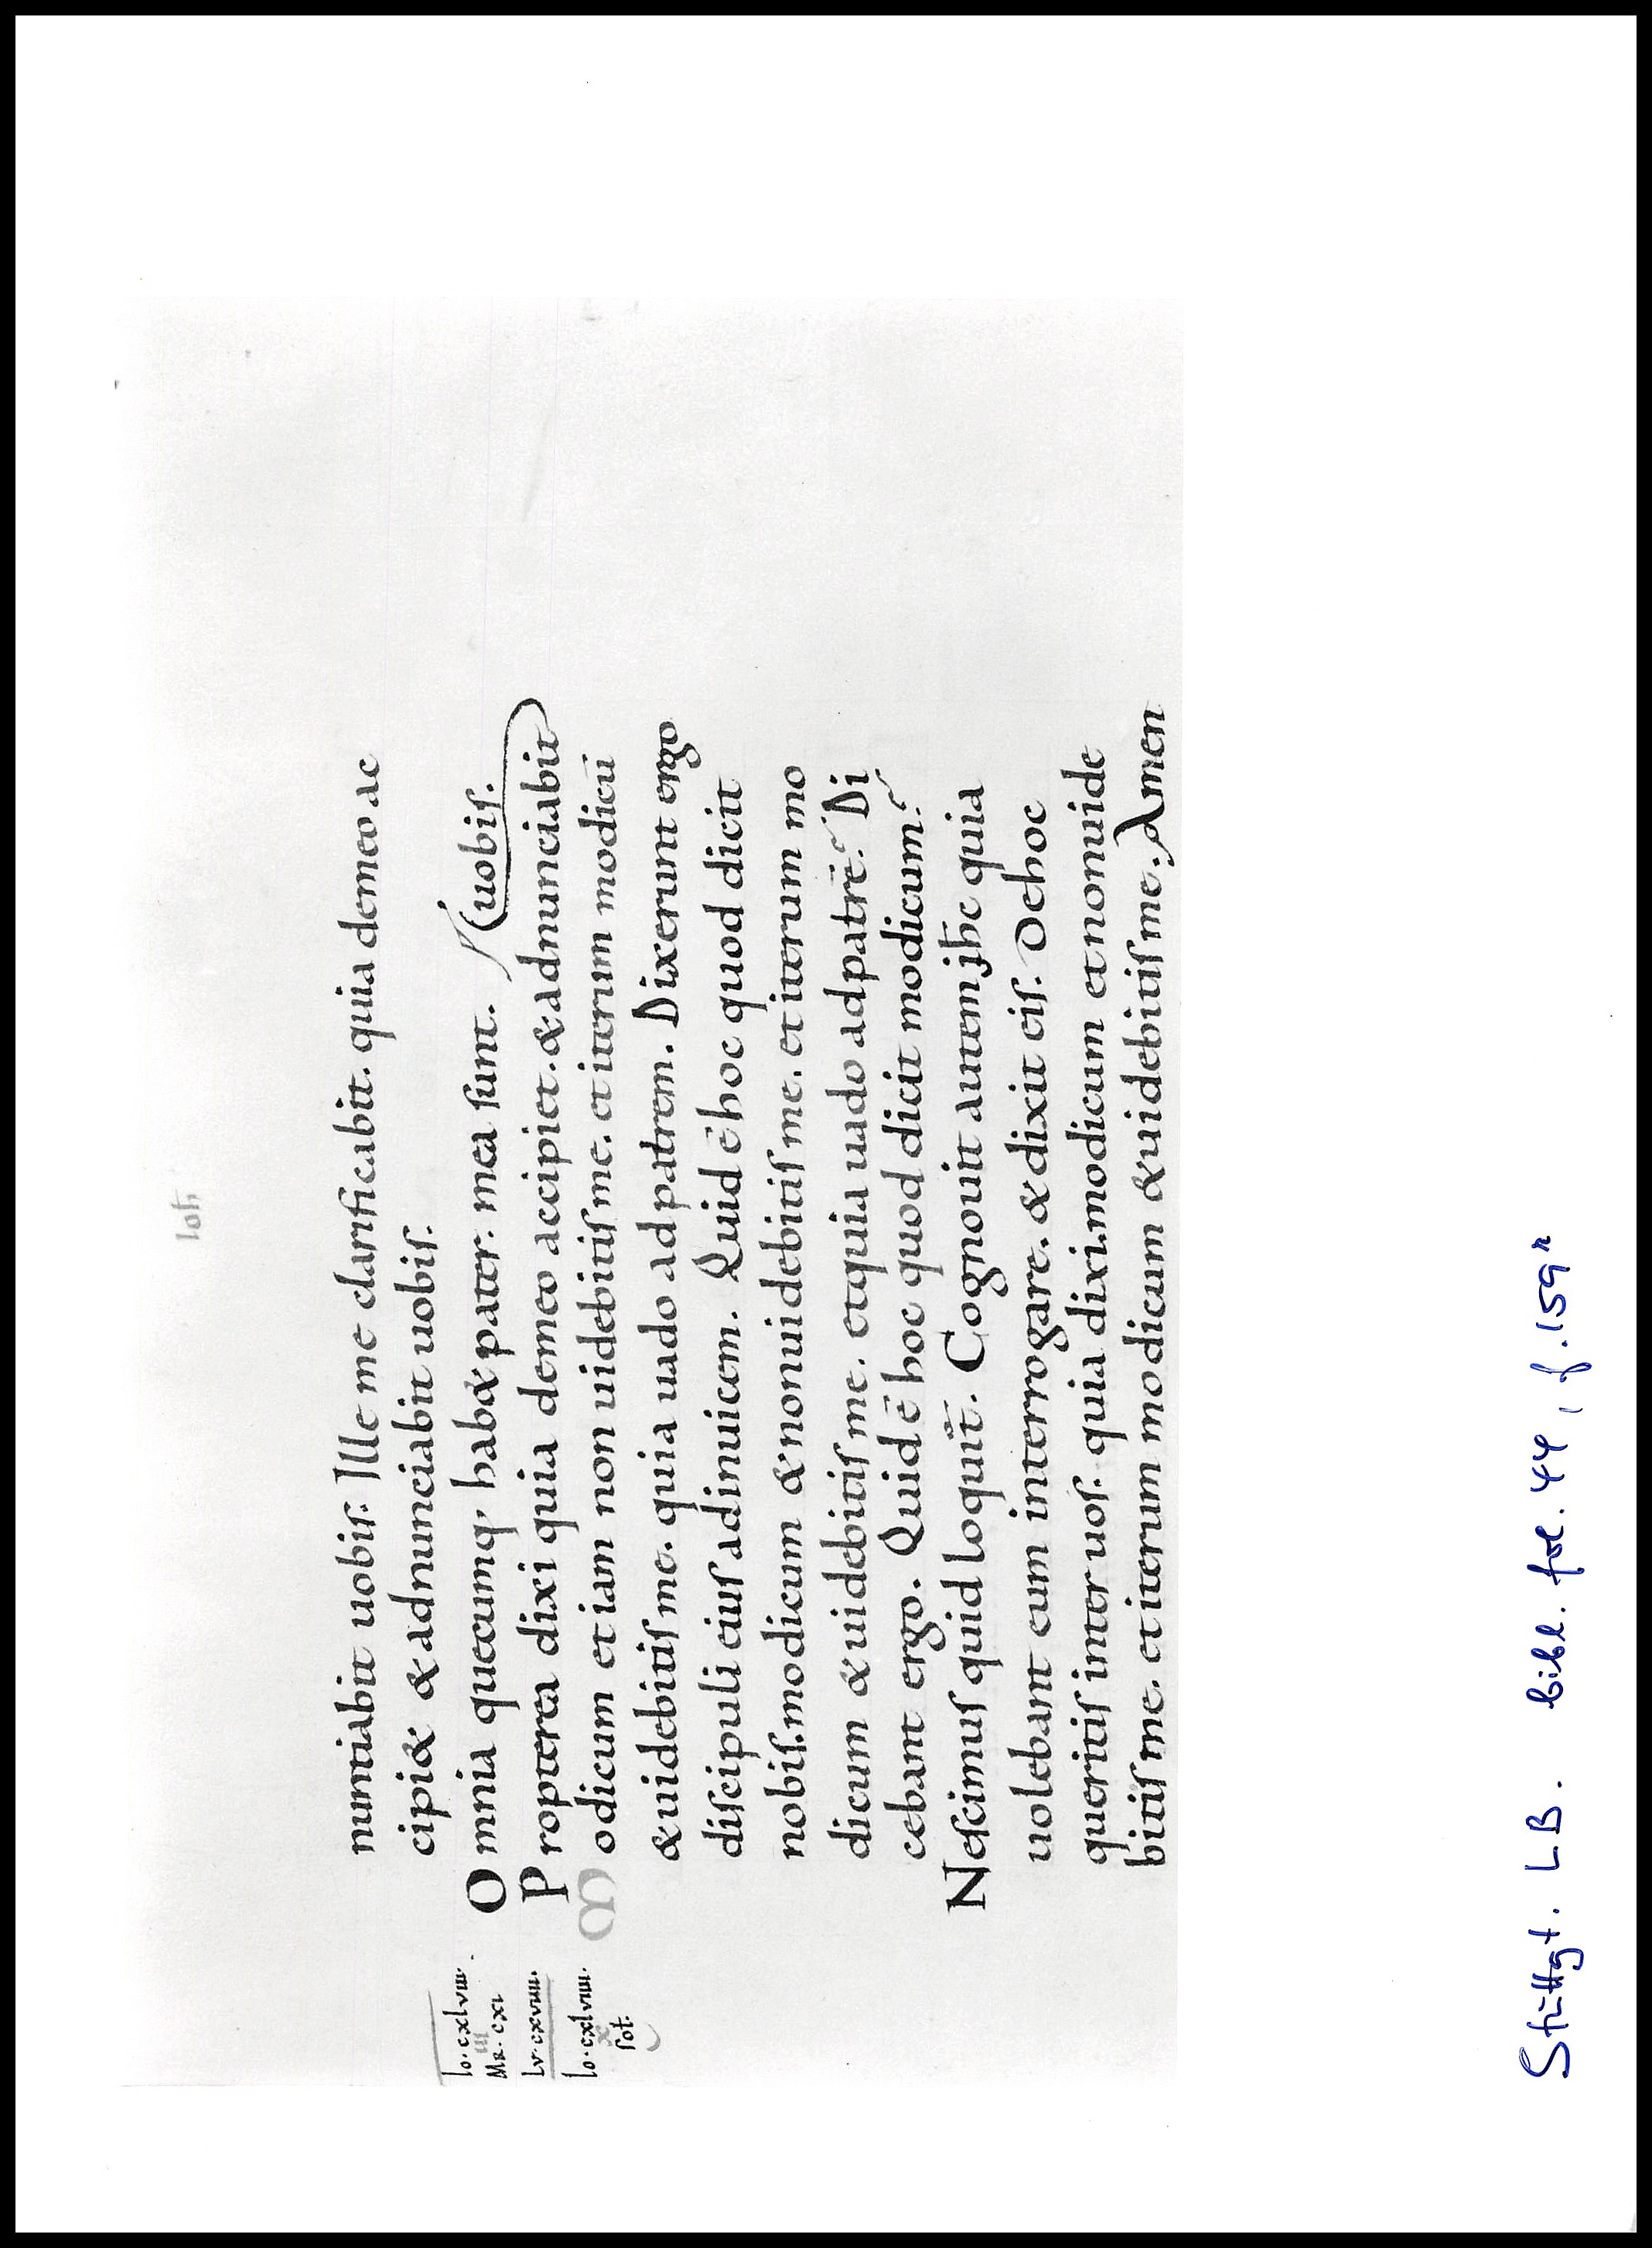 Ioh
nuntiabit uobiſ. Ille me clarificabit. quia demeo ac
cipi& & adnunciabit uobiſ.
Omnia quecumq; hab& pater. mea ſunt. uobiſ.
Propterea dixi quia demeo accipiet. & adnunciabit
Modicum et iam non uidebitiſ me. et iterum modicū
& uidebitiſ me. quia uado ad patrem. Dixerunt ergo
diſcipuli eiuſ adinuicem. Quid ē hoc quod dicit
nobiſ. modicum & nonuidebitiſ me. et iterum mo
dicum & uidebitiſ me. et quia uado ad patrē? Di
cebant ergo. Quid ē hoc quod dicit modicum?
Neſcimuſ quid loquit̄. Cognouit autem jh̄c quia
uolebant eum interrogare. & dixit eiſ. De hoc
queritiſ inter uoſ. quia dixi. modicum et nonuide
bitiſ me. et iterum modicum & uidebitiſ me. Amen
Io. cxlviii.
III
MR. cxi
Lv. cxviiii.
Io. cxlviiii.
x
ſot.
Stuttgt. LB. bibl. fol. 44, f. 159r